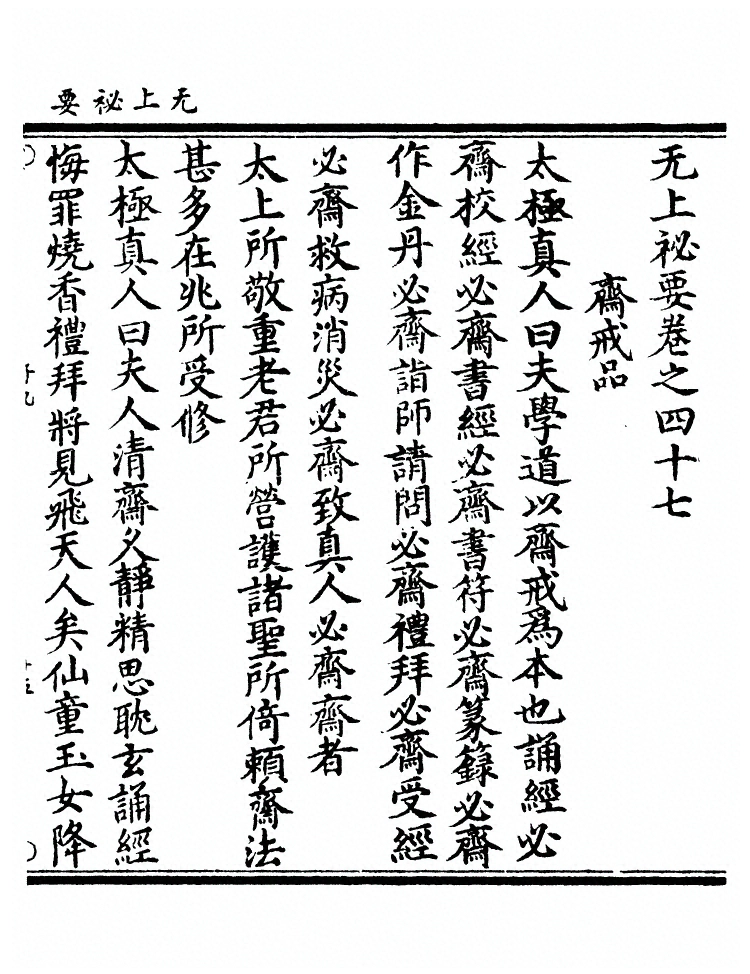 无上祕要
无上祕要卷之四十七
齋戒品
太極真人曰夫學道以齋戒爲本也誦經必
齋校經必齋書經必齋書符必齋篆籙必齋
作金丹必齋詣師請問必齋禮拜必齋受經
必齋救病消災必齋致真人必齋齋者
太上所敬重老君所營護諸聖所倚賴齋法
甚多在兆所受修
太極真人曰夫人清齋久靜精思耽玄誦經
悔罪燒香禮拜將見飛天人矣仙童玉女降